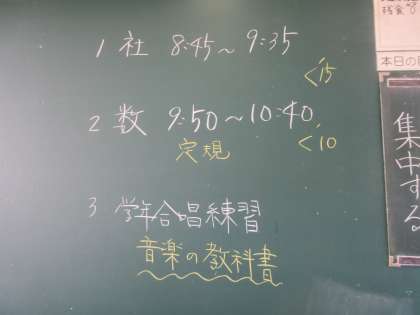 1 社 8:45~9:35
<15
2 数 9:50~10:40
定規
<10
3 学年合唱練習
音楽の教科書
本日の
集中する